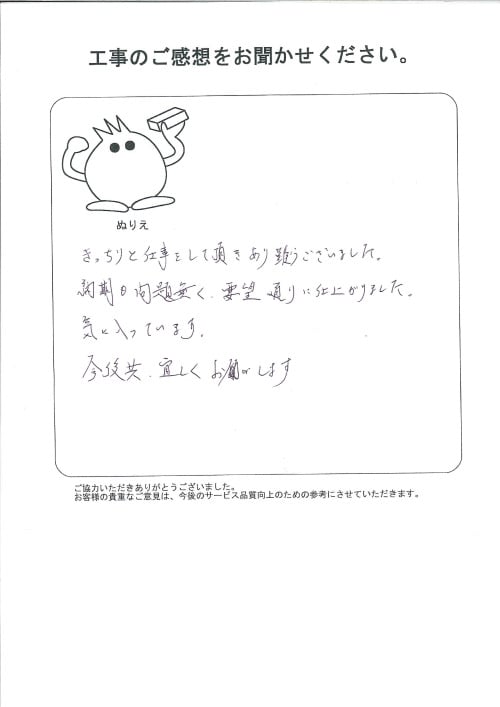 工事のご感想をお聞かせください。
ぬりえ
きっちりと仕事をして頂きあり難うございました。
納期日問題無く、要望通りに仕上がりました。
気に入っています。
今後共、宜しくお願いします
ご協力いただきありがとうございました。
お客様の貴重なご意見は、今後のサービス品質向上のための参考にさせていただきます。